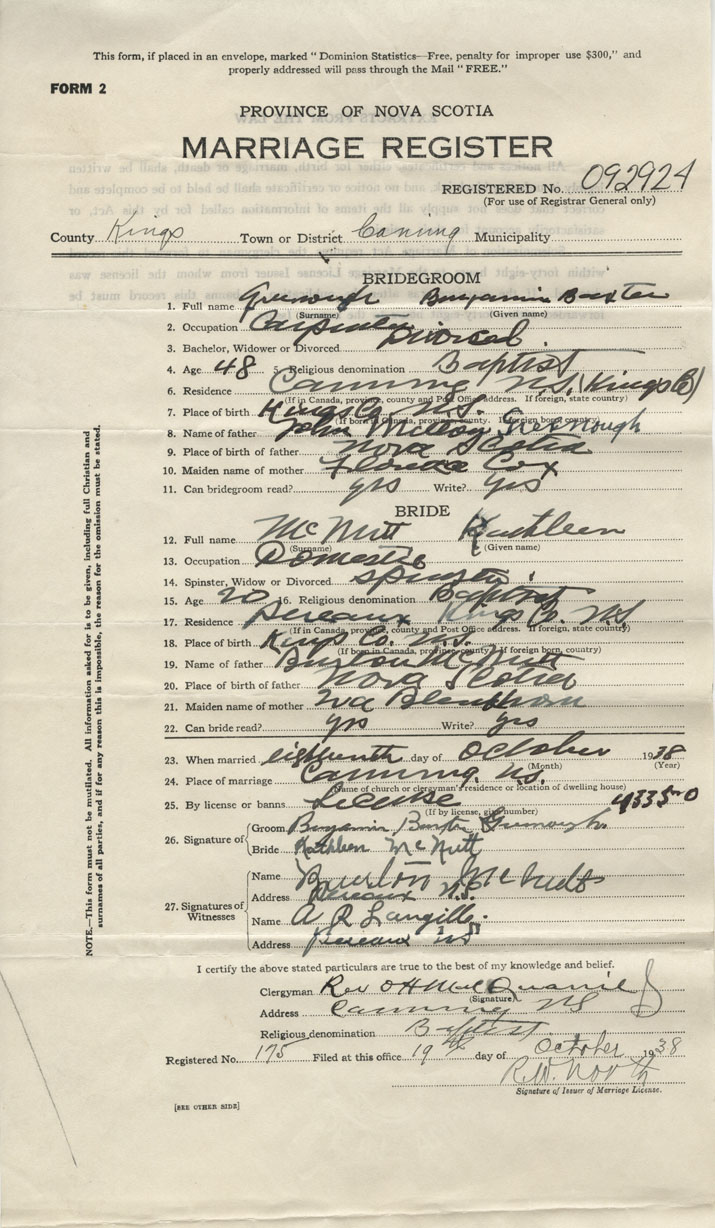 This form, if placed in an envelope, marked "Dominion Statistics—Free, penalty for improper use $300," and
properly addressed will pass through the Mail "FREE."
FORM 2
PROVINCE OF NOVA SCOTIA
MARRIAGE REGISTER
REGISTERED No. 092924
(For use of Registrar General only)
County Kings Town or District Canning Municipality
BRIDEGROOM
1. Full name Greenough Benjamin Baxter
(Surname) (Given name)
2. Occupation Carpenter
3. Bachelor, Widower or Divorced Divorced
4. Age 48 5. Religious denomination Baptist
6. Residence Canning N.S. (Kings Co)
(If in Canada, province, county and Post Office address. If foreign, state country)
7. Place of birth Kings Co. N.S.
(If born in Canada, province, county. If foreign born, country)
8. Name of father John Greenough
9. Place of birth of father Nova Scotia
10. Maiden name of mother Florence Cox
11. Can bridegroom read? yes Write? yes
BRIDE
12. Full name McNutt Kathleen
(Surname) (Given name)
13. Occupation Domestic
14. Spinster, Widow or Divorced Spinster
15. Age 20 16. Religious denomination Baptist
17. Residence Pereaux Kings Co. N.S.
(If in Canada, province, county and Post Office address. If foreign, state country)
18. Place of birth Kings Co. N.S.
(If born in Canada, province, county. If foreign born, country)
19. Name of father Burton McNutt
20. Place of birth of father Nova Scotia
21. Maiden name of mother
22. Can bride read? yes Write? yes
23. When married eighteenth day of October 1938
(Month) (Year)
24. Place of marriage Canning N.S.
(Name of church or clergyman's residence or location of dwelling house)
25. By license or banns License
(If by license, give number)
26. Signature of Groom Benjamin Baxter Greenough
Bride Kathleen McNutt
27. Signatures of Witnesses
Name Burton McNutt
Address Pereaux N.S.
Name A R Langille
Address Pereaux NS
I certify the above stated particulars are true to the best of my knowledge and belief.
Clergyman Rev O H MacQuarrie
(Signature)
Address Canning NS
Religious denomination Baptist
Registered No. 175 Filed at this office 19th day of October 1938
R.W. North
Signature of Issuer of Marriage License.
[SEE OTHER SIDE]
NOTE.—This form must not be mutilated. All information asked for is to be given, including full Christian and
surnames of all parties, and if for any reason this is impossible, the reason for the omission must be stated.